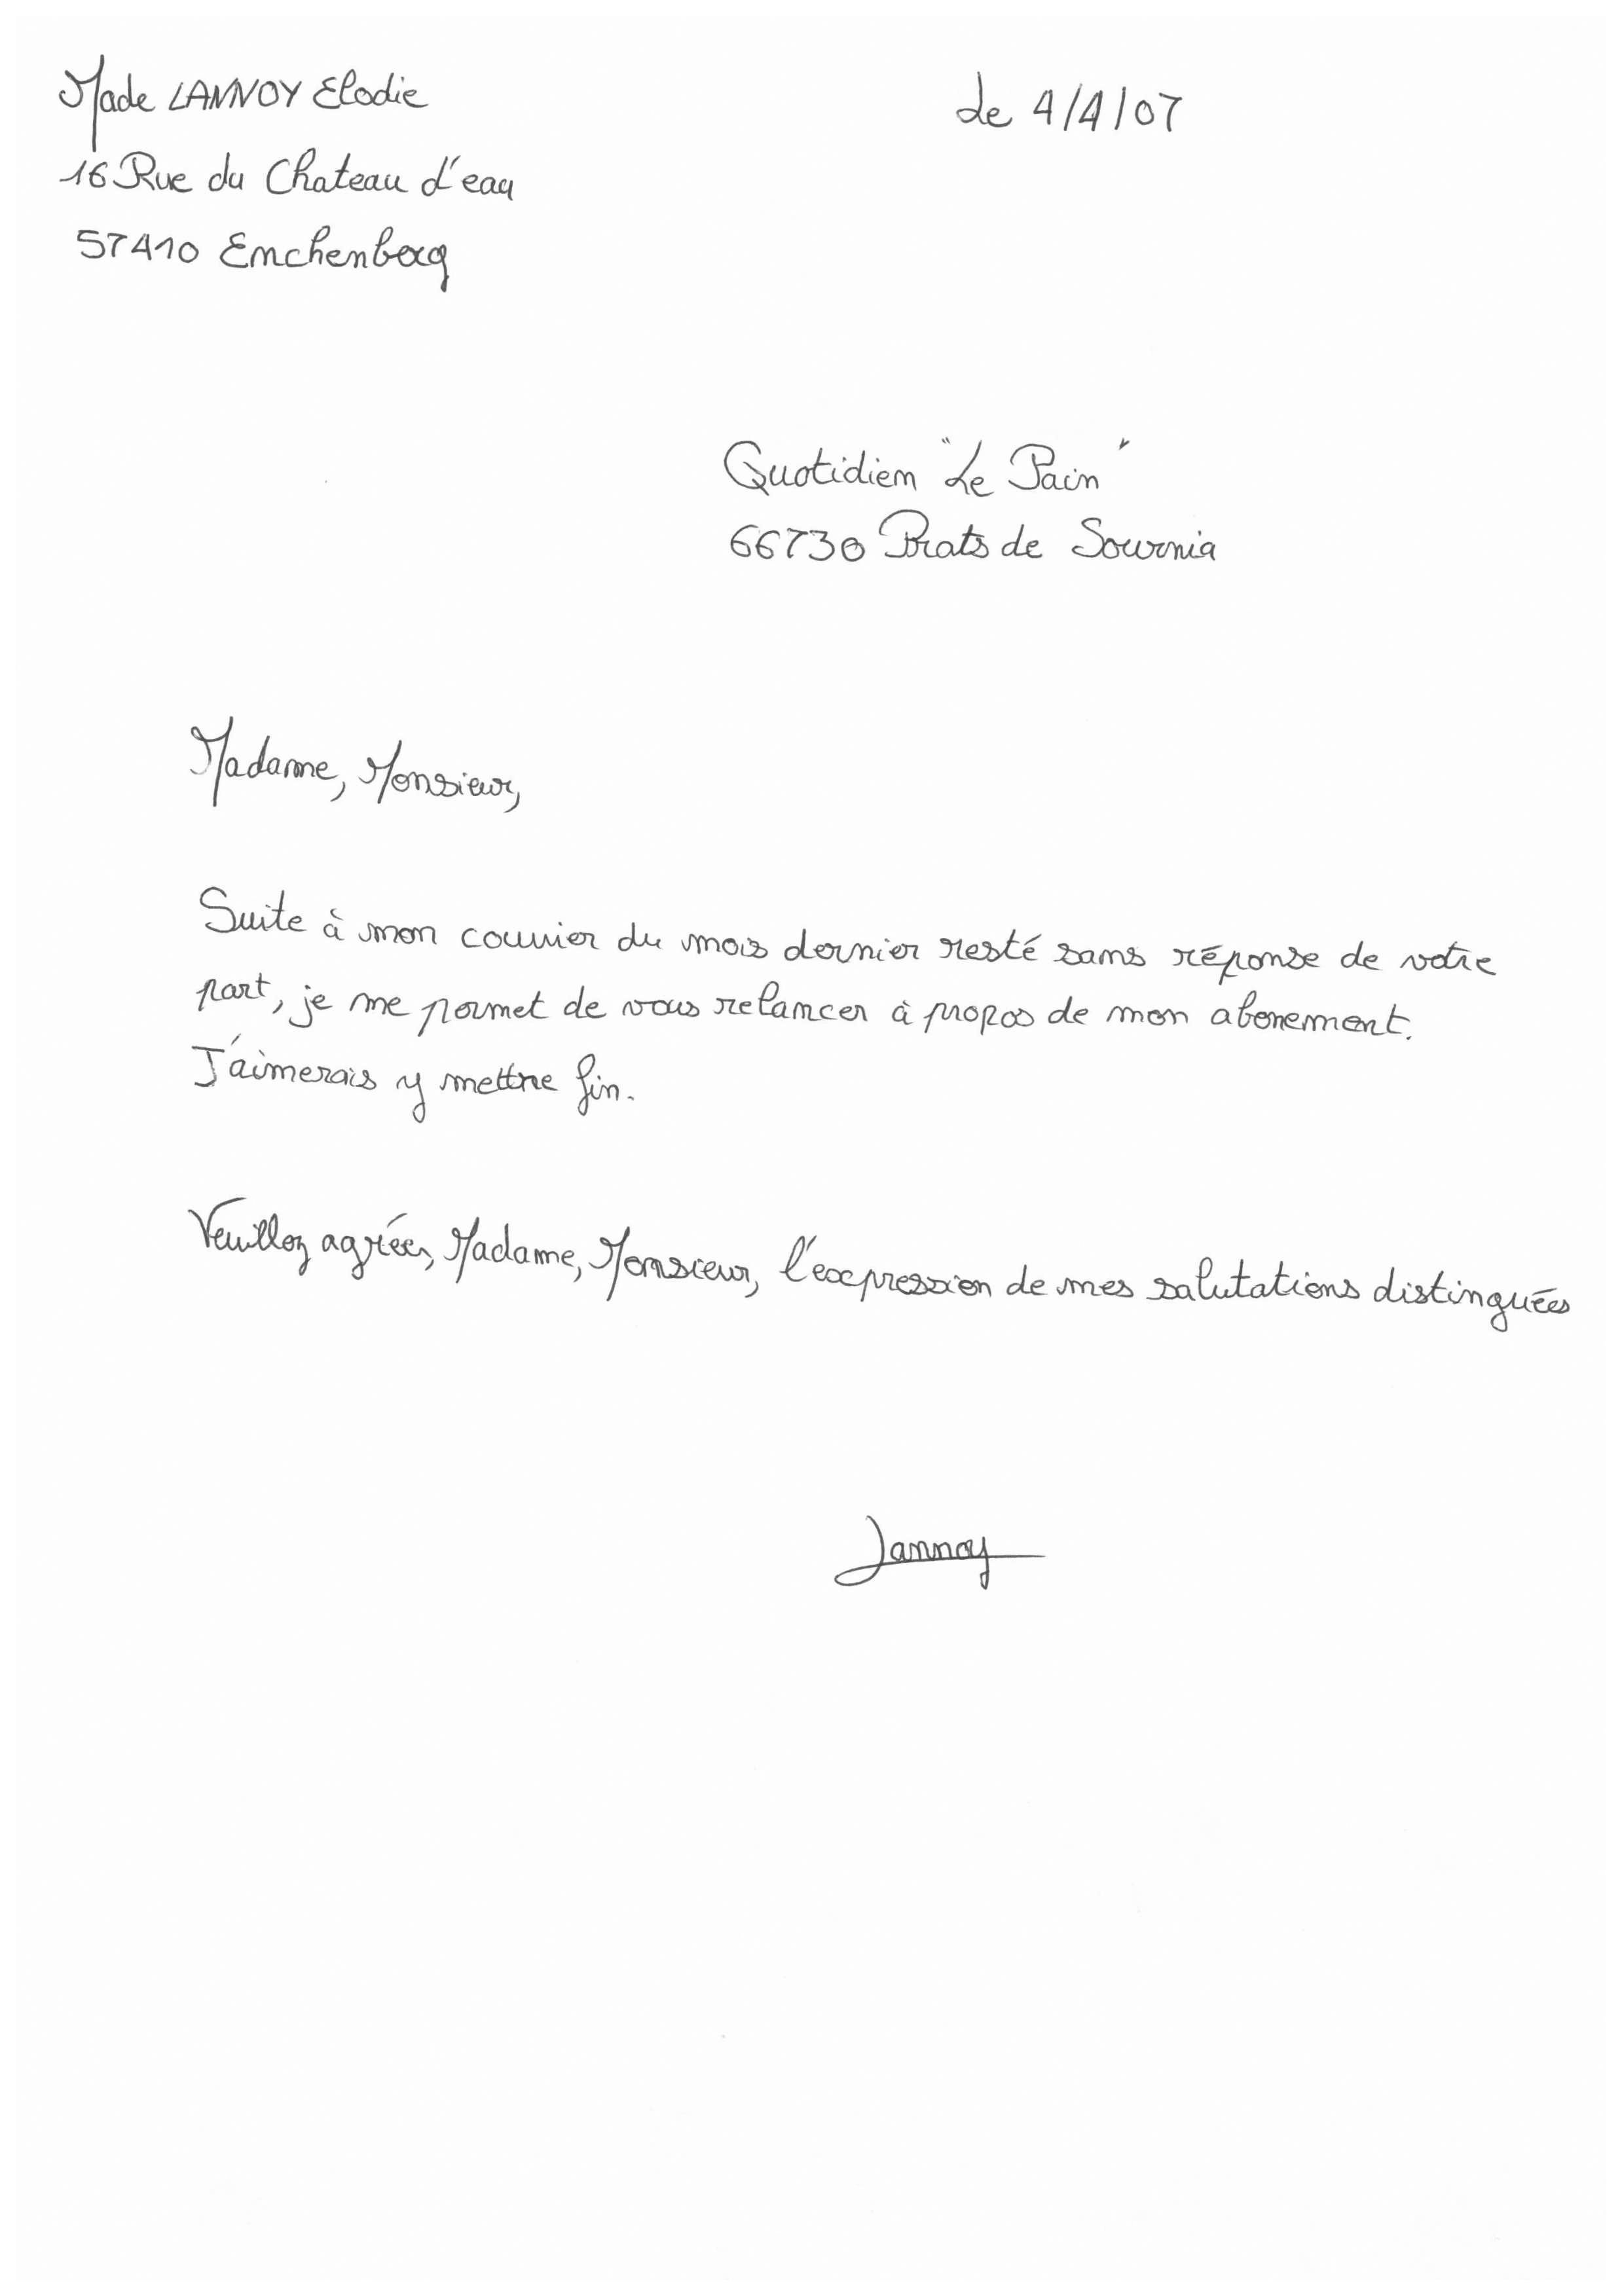 Made LANNOY Elodie
Le 4/4/07
16 Rue du Chateau d'eau
57410 Enchenberg
Quotidien "Le Pain"
66730 Prats de Sournia
Madame, Monsieur,
Suite à mon courrier du mois dernier resté sans réponse de votre
part, je me permet de vous relancer à propos de mon abonement.
J'aimerais y mettre fin.
Veuillez agréer, Madame, Monsieur, l'expression de mes salutations distinguées
Lannoy